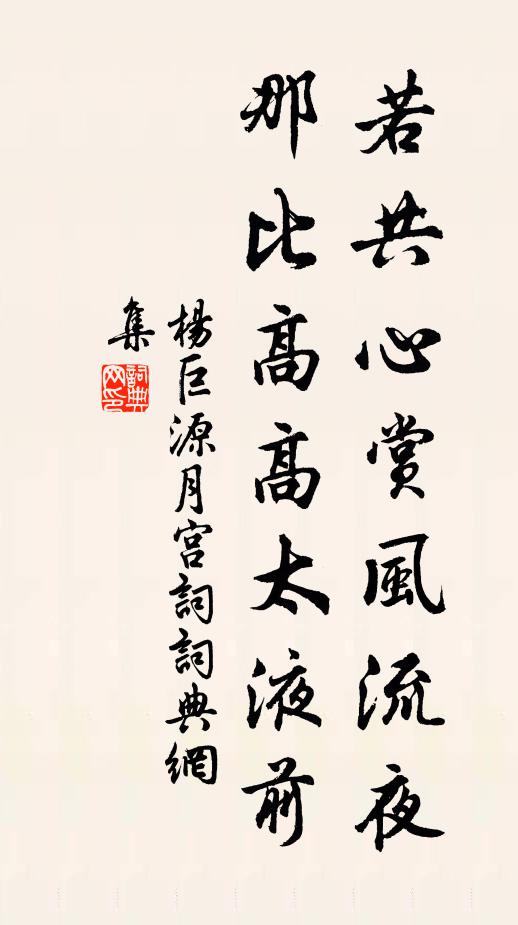 若共心賞風流夜
那比高高太液前
楊巨源月宮詞詞典網
集
詞典
网印